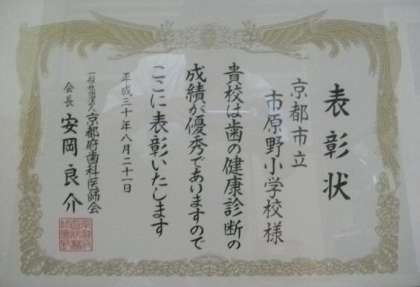 表彰状
京都市立
市原野小学校様
貴校は歯の健康診断の
成績が優秀でありますので
ここに表彰いたします
平成三十年八月二十一日
一般社団法人京都府歯科医師会
会長 安岡良介